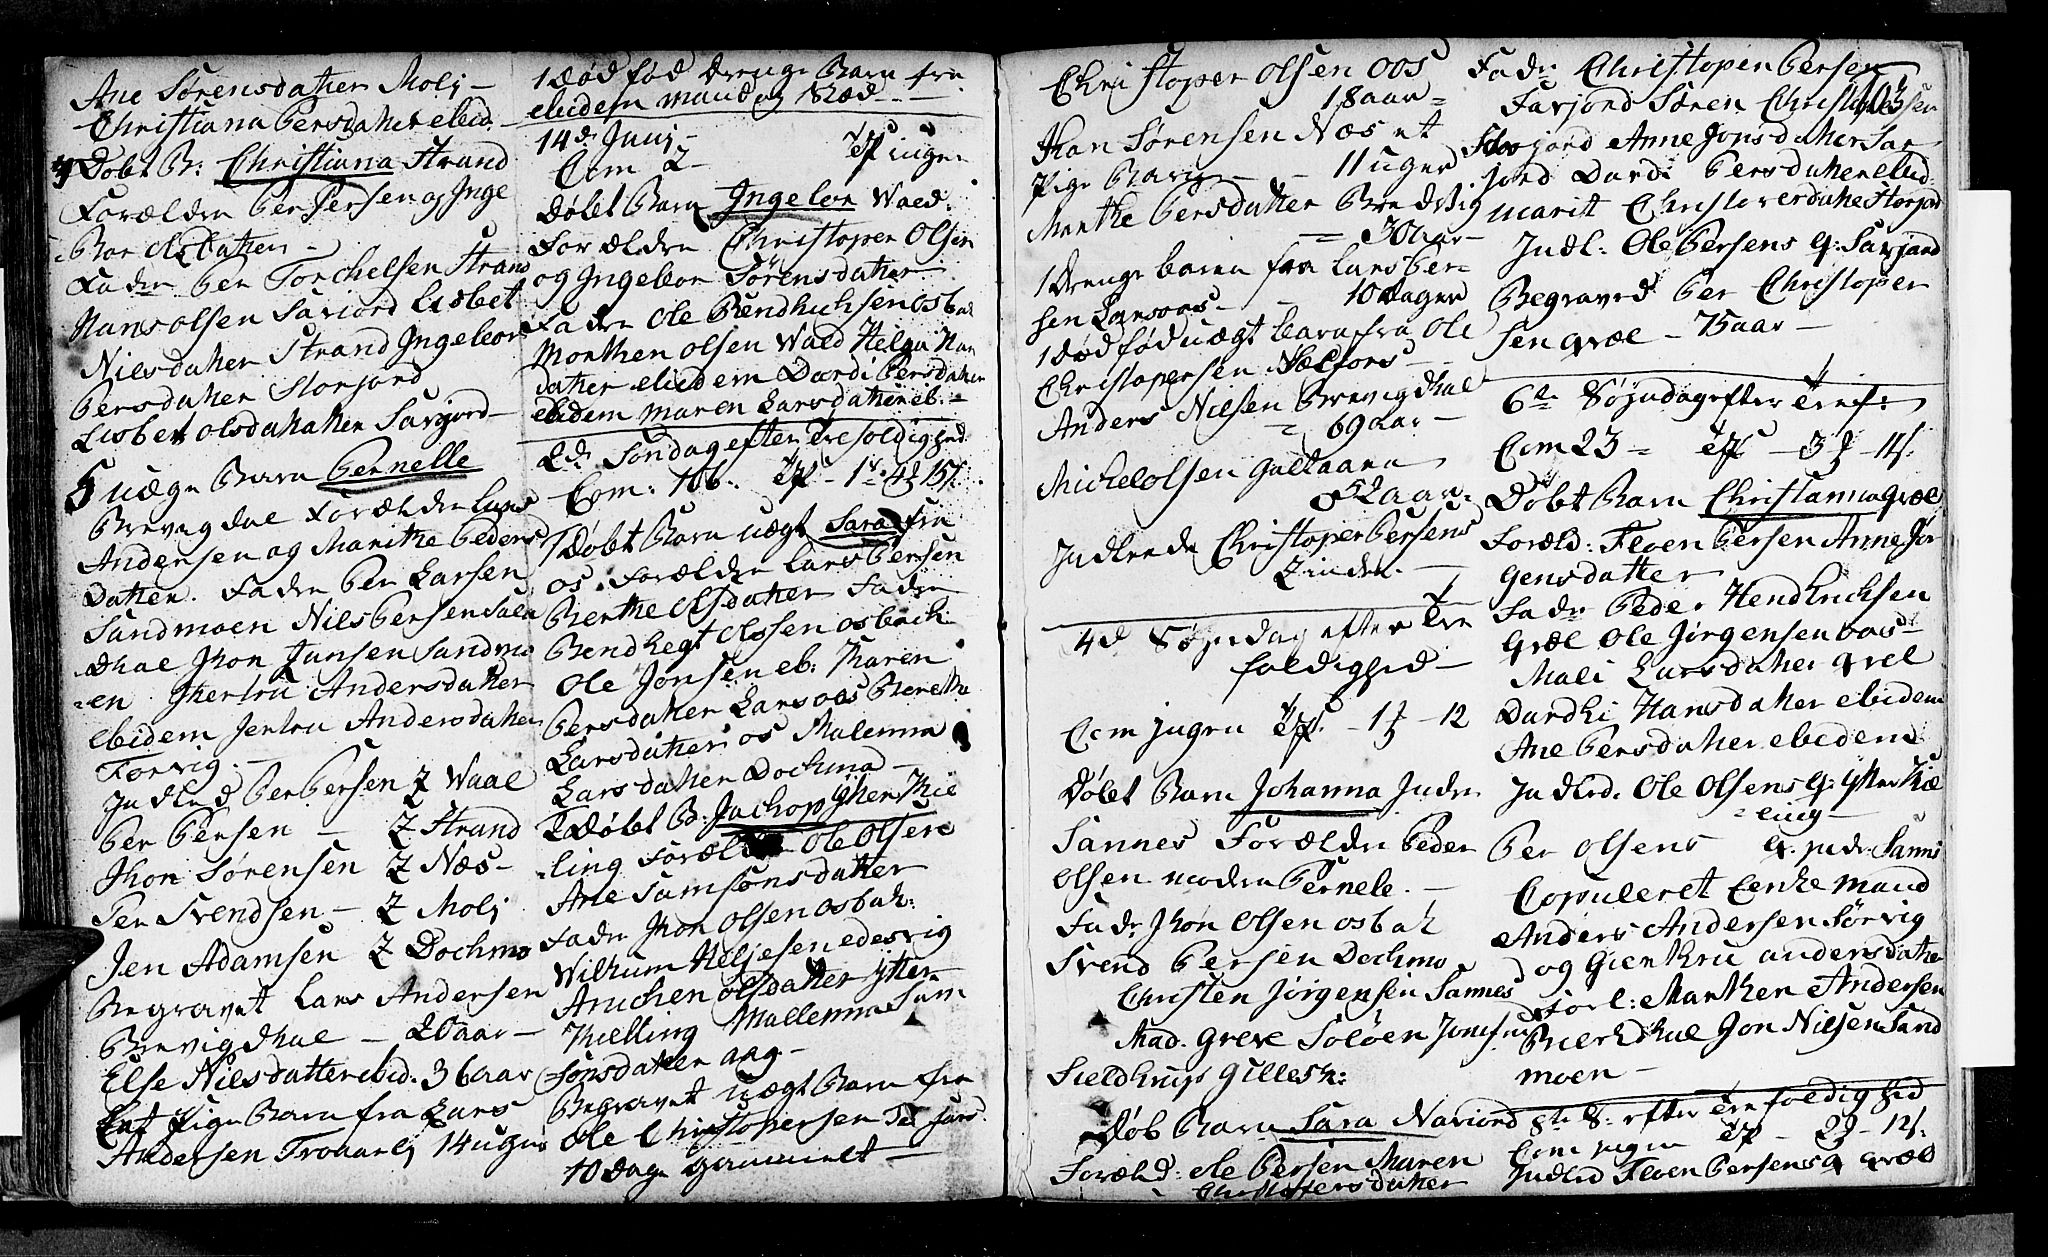 Ane Sørensdatter Molj –
Christiana Persdatter ebid.
4 Døbt B: Christiana Strand
Forældre Per Persen og Inge
Bor Olsdatter –
Faddr Per Torchelsen Strand
Hans Olsen Sariord Lisbet
Nielsdatter Strand Ingebor
Persdatter Storjord
Lisbet Olsdatter Sarjord –
5 uægte Barn Pernelle
Brevegdal Forældre Lars
Andersen og Marithe Peders
Datter. Fadre Per Larsen
Sandmoen Nils Persen
dhal Jhon Jansen Sandmo
en Jhertru Andersdatter
ebidem Jertru Andersdatter
Torvig. –
Indled Per Persen Q Waal
Per Persen – Q Strand
Jhon Sørensen Q Næs –
Per Svendsen – Q Molj
Jen Adamsen Q Dochmo
Begravet Lars Andersen
Brevigdhal – 20 aar –
Else Nilsdatter ebid. 36 aar
Et Pige Barn fra Lars
Andersen Troaarlj 14 uger
1 Død fød Drenge Barn fra
ebidem mand og Sted –
14de Junj –
Com 2 –
Døbt Barn Ingebor Wald.
Forældre Christoper Olsen
og Ingebor Sørensdatter
Fadre Ole Bendhichsen Osbak
Morthen Olsen Wald Helga Han
datter ebidem Dardi Persdatter
ebidem Maren Larsdatter eb. –
2de Søndag efter Trefoldighed
Com: 166.
1 Døbt Barn uægt Sara fra
Os. Forældre Lars Persen
Berthe Olsdatter Fadre
Bendhegt Olssen Osbach
Ole Jonsen eb: Karen
Persdatter Larsoos Berethe
Larsdatter Os Malenna
Larsdatter Dochmo –
2 Døbt B: Jachop Ytter Kiel
ling Forældre Ole Olsen
Ane Samsonsdatter
Fadre Jhon Olsen Osbak:
Wilhum Heljesen edesvig
Anichen Olsdatter Ytter
Kielling Mallenna Sam
sonsdatter aag. –
Begravet uægt Barn fra
Ole Christopersen
10 Dage gammelt –
Christoper Olsen Oos
18 aar =
Jhon Sørensen Næs et
Pige Barn – 11 uger
Marthe Persdatter Bredvig
= 30 aar –
1 Drenge barn fra Lars Per=
sen Larsoos – 10 Dager
1 Død fød uægt barn fra Ole
Christopersen Næstfors –
Anders Nilsen Brevegdhal
= 69 aar –
Mickel Olsen Galtaaen
52 aar.
Indlede Christoper Persens
Qinde. –
4de Søndag efter Tre
foldighed –
Com jngen – 12
Døbt Barn Johanna Indr
Sannes Forældre Peder
Olsen modren Pernele. –
Fadr Jhon Olsen Osbak
Svend Persen Dochmo
Christen Jørgensen Sannes
Mad. Greve Soløen Jomfru
Sieldhrup Gillesk:
Døb Barn Sara Nariord
Foræld: Ole Persen Maren
Christophersdatter
Fadr Christopen Persen
Sarjord Søren Christophersen
Storjord Anne Jonsdatter Sar
jord Dardi Persdatter ebid.
Marit Christopersdatter Storjord
Indl: Ole Persens Q: Sarjord
Begraved Per Christoper
sen Græl – 75 aar –
6te Søndag efter Tref:
Com 23 =
Døbt Barn Christianna Græl
Foræld: Floen Persen Anne Jør
gensdatter
Fadr Peder Hendrichsen
Græl Ole Jørgensen oos –
Mali Larsdatter Græl
Dardhi Hansdatter ebidem
Ane Persdatter ebidem
Indled. Ole Olsens Q: Ytter Kiel
=ling –
Per Olsens Q: indr. Sannes
Copuleret Encke Mand
Anders Andersen Sørvig
og Gierthru Andersdatter
Forl: Marthen Andersen
Bierckdhal Jon Nilsen Sand
moen –
8de S: efter Trefoldighed
Com ingen
Indled Floen Persens Q Græl